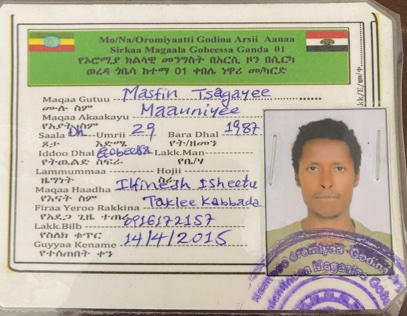 Mo/Na/Oromiyaatti Godina Arsii Aanaa
Sirkaa Magaala Gobeessa Ganda 01
የኦሮሚያ ክልላዊ መንግስት በአርሲ ዞን በሲርካ
ወረዳ ጎቤሳ ከተማ 01 ቀበሌ ነዋሪ መ/ካርድ
Maqaa Gutuu Masfin Tsagayee
ሙሉ ስም
Maqaa Akaakayu Maauniyee
የአያት ስም
Saala Dh Umrii 29 Bara Dhal 1987
ጾታ እድሜ የት/ዘመን
Iddoo Dhal Gobeessa Lakk.Man
የትዉልድ ስፍራ የቤ/ቁ
Lammummaa Hojii
ዜግነት ስራ
Maqaa Haadha Ilfinesh Isheetu
የእናት ስም
Firaa Yeroo Rakkina Taklee Kabbada
የአደጋ ጊዜ ተጠሪ
Lakk.Bilb 0916172157
የስልክ ቁጥር
Guyyaa Kename 14/4/2015
የተሰጠበት ቀን